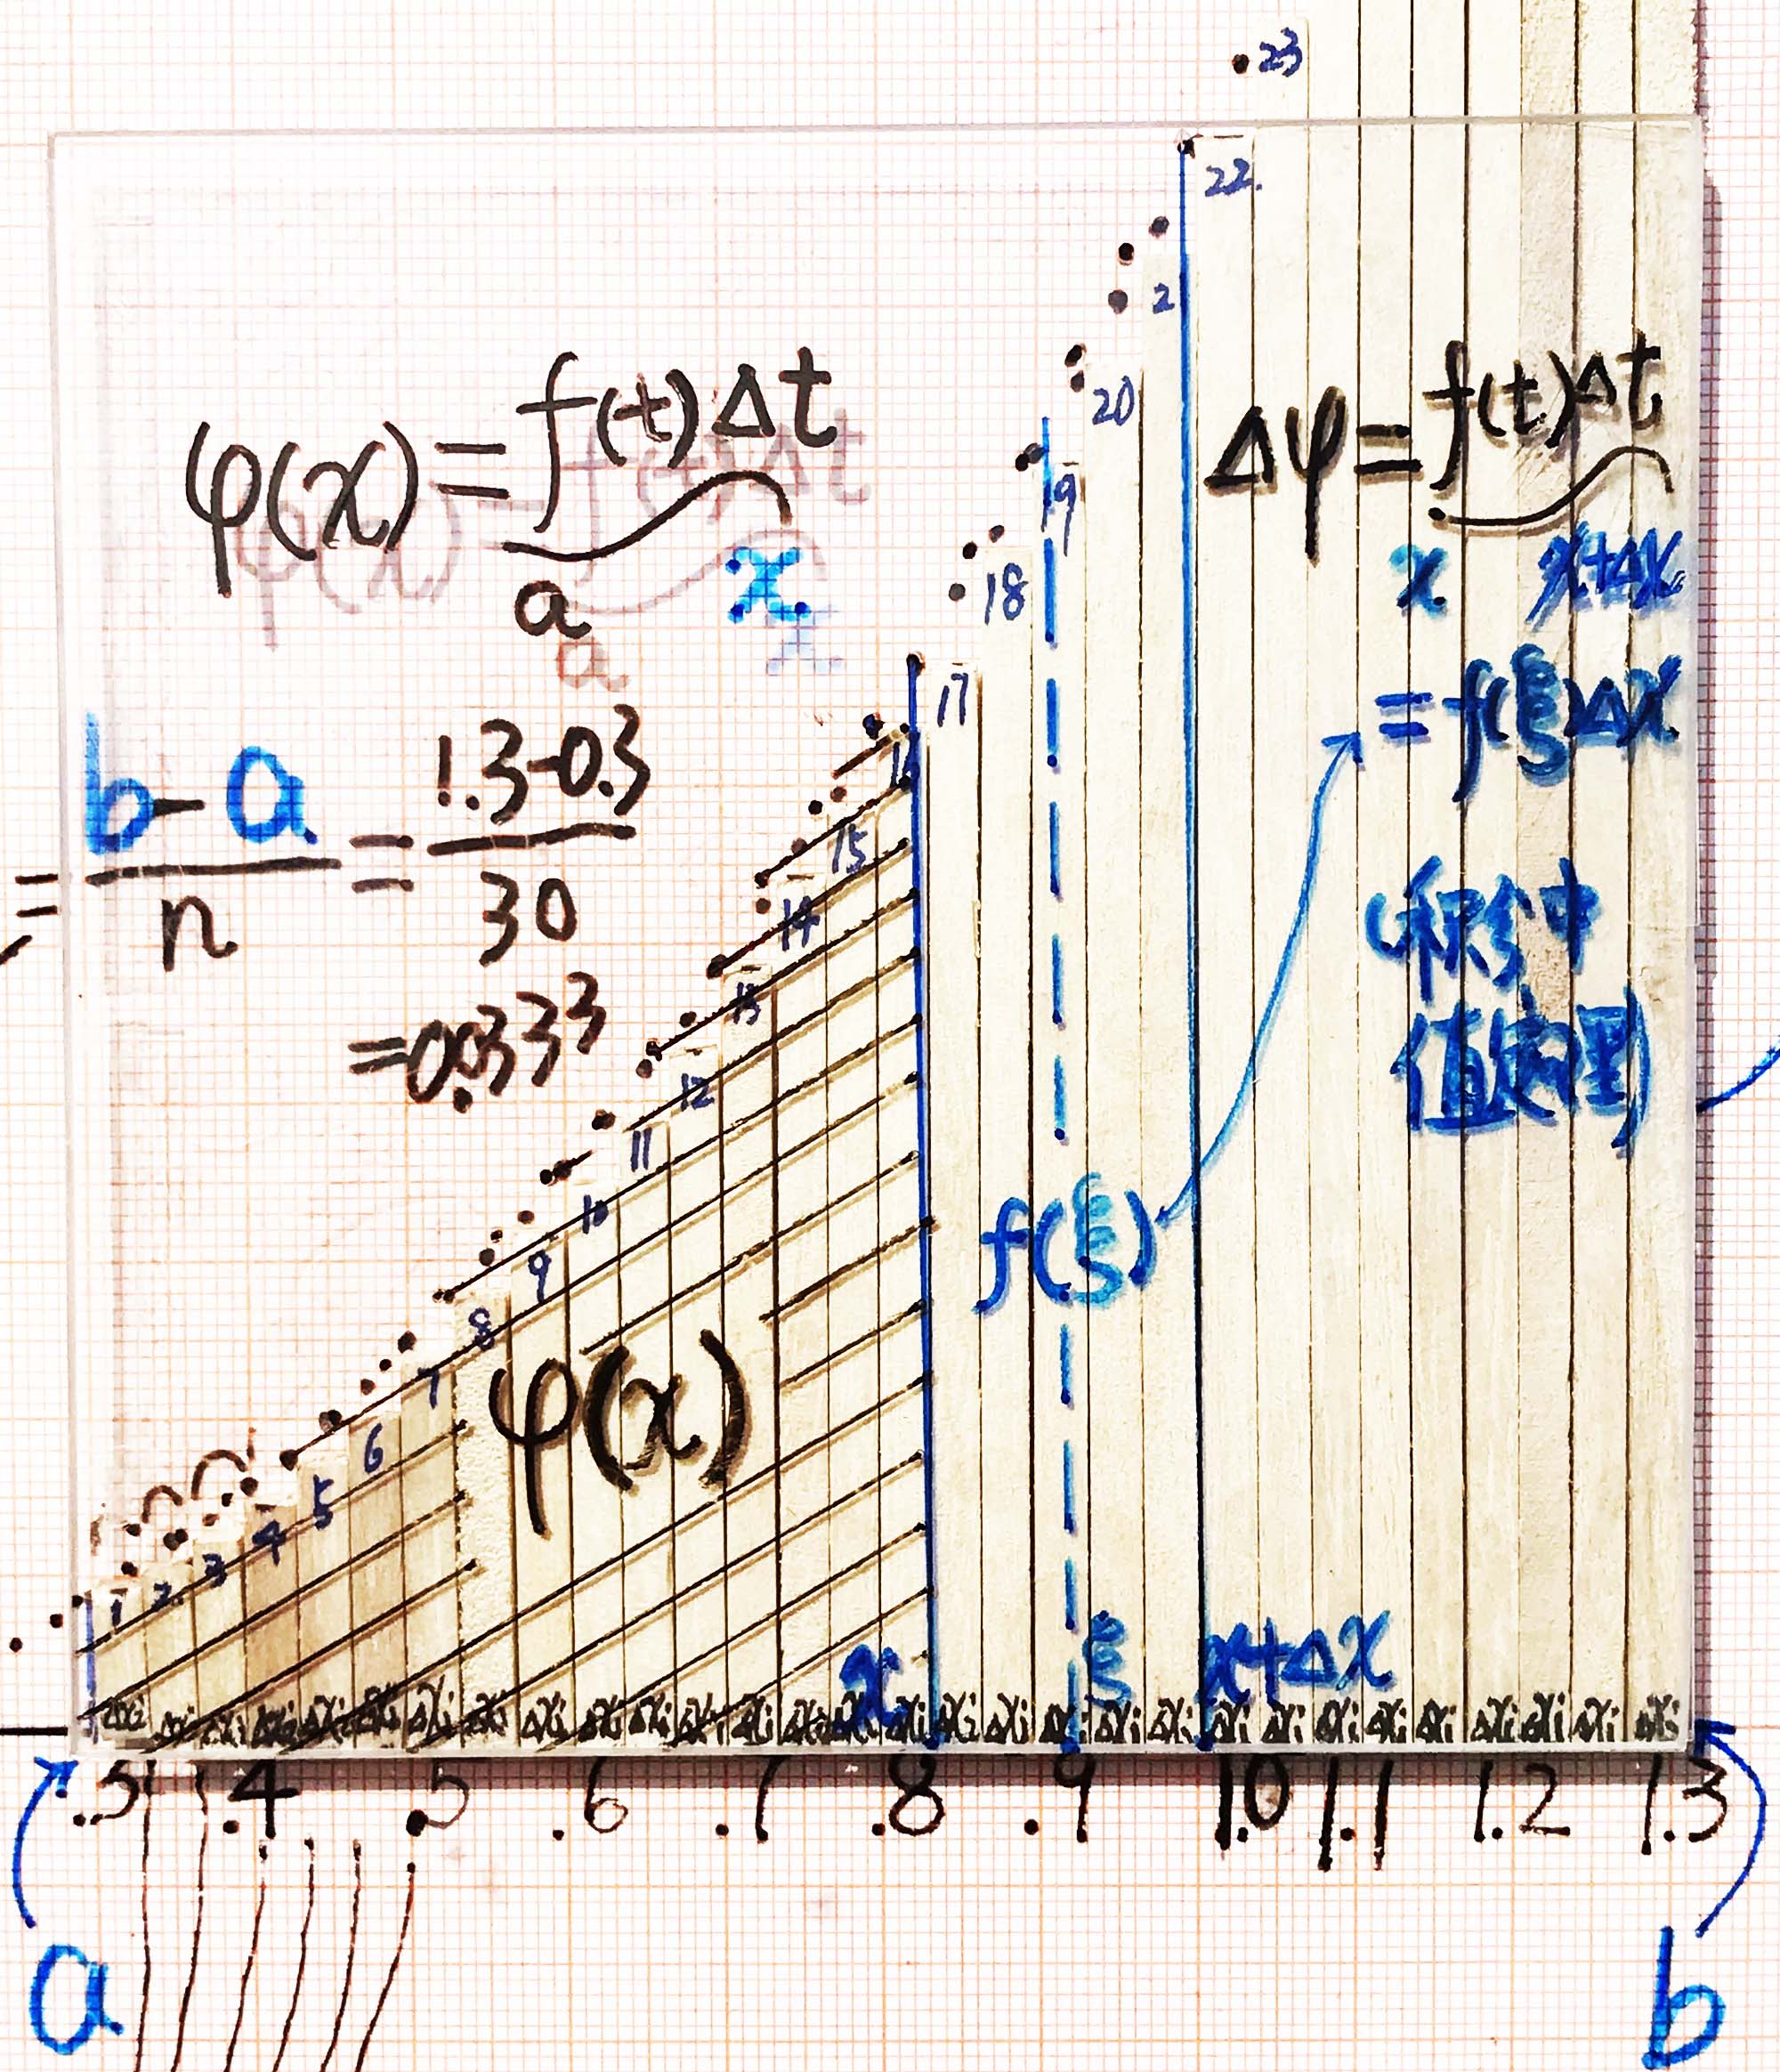 23
22.
2
20
19
18
17
16
15
14
13
12
11
10
9
8
7
6
5
4
3
2
1
φ(x)=f(t)Δt
a x
Δφ=f(t)Δt
x x+Δx
=f(ξ)Δx
(积分中
值定理)
= b-a / n = 1.3-0.3 / 30
=0.0333
f(ξ)
φ(x)
x ξ x+Δx
Δxi Δxi Δxi Δxi Δxi Δxi Δxi Δxi Δxi Δxi Δxi Δxi Δxi Δxi Δxi Δxi Δxi Δxi Δxi Δxi Δxi Δxi Δxi Δxi Δxi Δxi Δxi Δxi Δxi
.3 .4 .5 .6 .7 .8 .9 1.0 1.1 1.2 1.3
a b